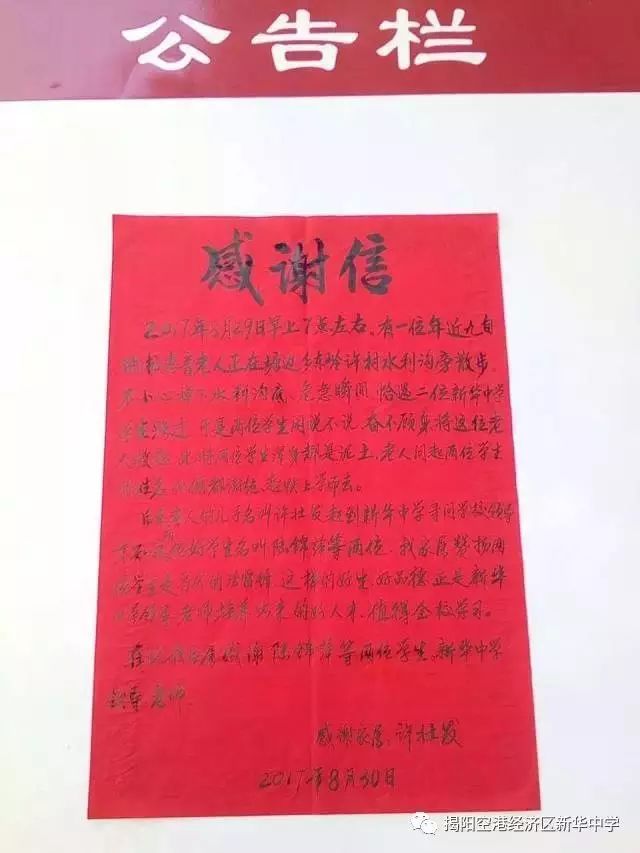 公告栏
感谢信
2017年8月29日早上7点左右、有一位年近九旬
老人正在塘边乡东岭许村水利沟旁散步
不小心掉下水利沟底、危急瞬间、恰遇二位新华中学
学生路过、于是两位学生闲晚不说、奋不顾身将这位老
人救起、此时两位学生浑身都是泥土、老人问起两位学生
的姓名他俩都谢绝、赶快上学而去。
后来老人的儿子名叫许壮发赶到新华中学寻问学校领导
好学生名叫陈锦萍等两位、我家属赞扬两
位学生是当代的活雷锋、这样的好生、好品德正是新华
中学领导老师培养出来的好人才、值得全校学习。
家属感谢陈锦萍等两位学生、新华中学
领导老师
感谢家属、许壮发
2017年8月30日
揭阳空港经济区新华中学